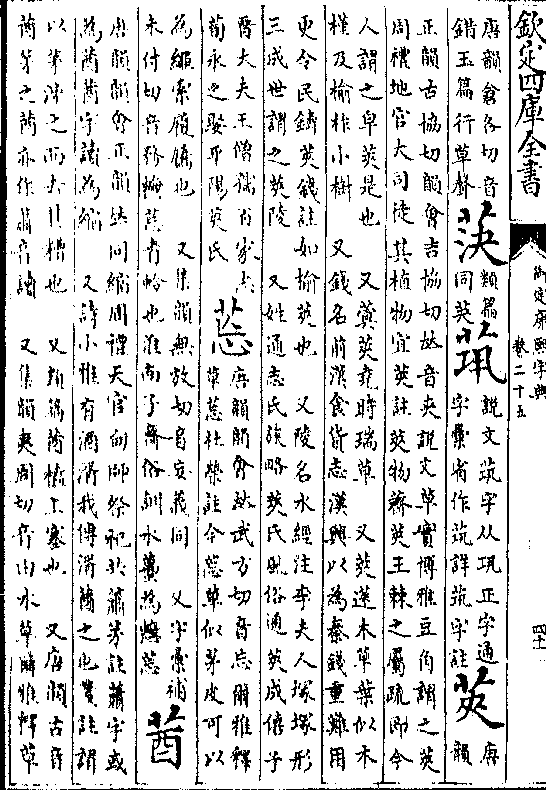 欽定四庫全書
御定康熙字典
卷二十五
四十一
唐韻倉各切音
錯玉篇行草聲
類篇
同莢
茿
說文筑字从巩正字通
字彙省作筑詳筑字註
莢
唐
韻
正韻古協切韻會吉協切𠀤音夾說文草實博雅豆角謂之莢
周禮地官大司徒其植物宜莢註莢物薺莢王棘之屬疏即今
人謂之皁莢是也 又蓂莢堯時瑞草 又莢蒾木草葉似木
槿及榆作小樹 又錢名前漢食貨志漢興以為秦錢重難用
更令民鑄莢錢註如榆莢也 又陵名水經注李夫人塚塚形
三成世謂之莢陵 又姓通志氏族略莢氏風俗通莢成僖子
晉大夫王僧孺百家志
荀永之娶平陽莢氏
莣
唐韻韻會𠀤武方切音忘爾雅釋
草莣杜榮註今莣草似茅皮可以
為繩索履屩也 又集韻無放切音妄義同 又字彙補
未付切音務
莤
唐韻韻會正韻𠀤同縮周禮天官甸師祭祀共蕭茅註蕭字或
為莤莤字讀為縮 又詩小雅有酒湑我傳湑莤之也箋註謂
以茅泲之而去其糟也 又類篇莤榼上塞也 又唐韻古音
莤茅之莤亦作蕭音讀 又集韻夷周切音由水草爾雅釋草